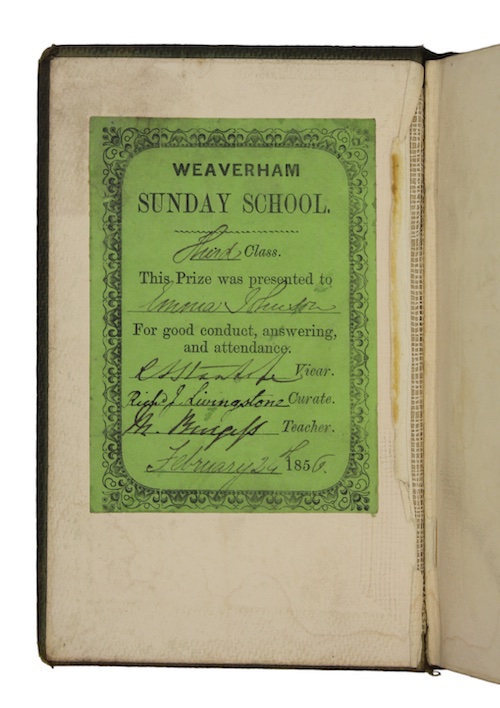 WEAVERHAM
SUNDAY SCHOOL.
Third Class.
This Prize was presented to
Emma Johnson
For good conduct, answering,
and attendance.
Vicar.
Richd J. Livingstone Curate.
M. Burgess Teacher.
February 24th 1856.